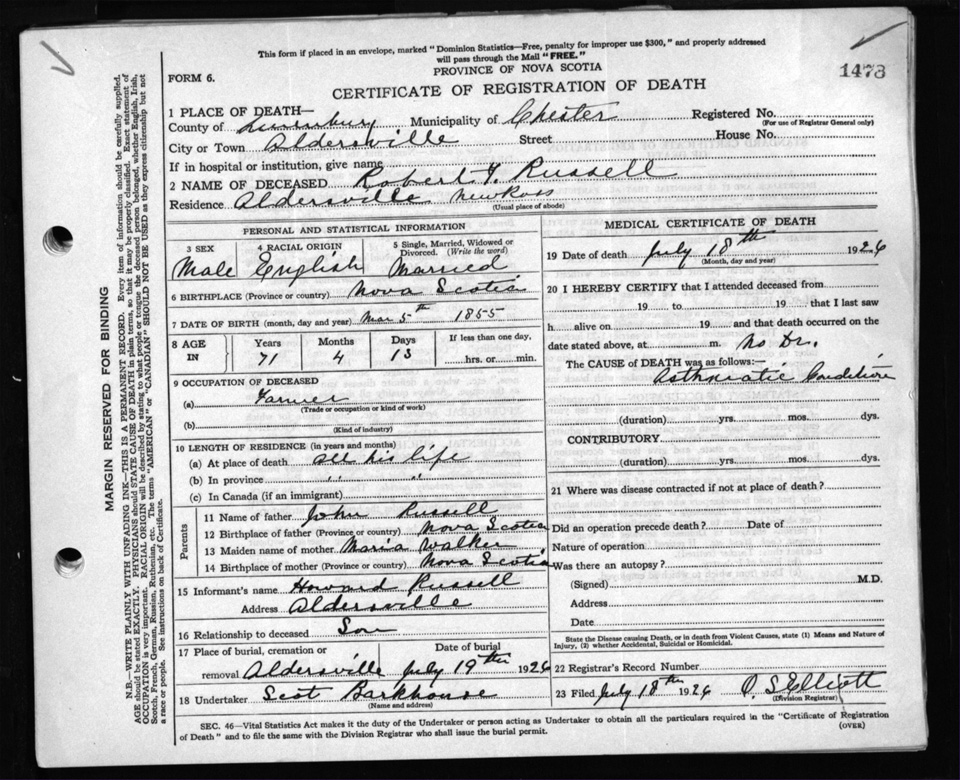 This form if placed in an envelope, marked "Dominion Statistics—Free, penalty for improper use $300," and properly addressed
will pass through the Mail "FREE."
PROVINCE OF NOVA SCOTIA
1473
FORM 6.
CERTIFICATE OF REGISTRATION OF DEATH
1 PLACE OF DEATH—
County of Lunenburg Municipality of Chester Registered No.
(For use of Registrar General only)
City or Town Aldersville Street House No.
If in hospital or institution, give name
2 NAME OF DECEASED Robert Y. Russell
Residence Aldersville New Ross
(Usual place of abode)
PERSONAL AND STATISTICAL INFORMATION
3 SEX 4 RACIAL ORIGIN 5 Single, Married, Widowed or
Divorced. (Write the word)
Male English Married
6 BIRTHPLACE (Province or country) Nova Scotia
7 DATE OF BIRTH (month, day and year) Mar 5th 1855
8 AGE IN Years Months Days If less than one day,
71 4 13 hrs. or min.
9 OCCUPATION OF DECEASED
(a) Farmer
(Trade or occupation or kind of work)
(b)
(Kind of industry)
10 LENGTH OF RESIDENCE (in years and months)
(a) At place of death all his life
(b) In province " "
(c) In Canada (if an immigrant)
Parents
11 Name of father John Russell
12 Birthplace of father (Province or country) Nova Scotia
13 Maiden name of mother Maria Walker
14 Birthplace of mother (Province or country) Nova Scotia
15 Informant's name Howard Russell
Address Aldersville
16 Relationship to deceased Son
17 Place of burial, cremation or Date of burial
removal Aldersville July 19th 1926
18 Undertaker Scot Barkhouse
(Name and address)
MEDICAL CERTIFICATE OF DEATH
19 Date of death July 18th 1926
(Month, day and year)
20 I HEREBY CERTIFY that I attended deceased from
19 to 19 that I last saw
h alive on 19 and that death occurred on
date stated above, at m. No Dr.
The CAUSE of DEATH was as follows:—
Asthmatic Condition
(duration) yrs. mos. dys.
CONTRIBUTORY
(duration) yrs. mos. dys.
21 Where was disease contracted if not at place of death?
Did an operation precede death? Date of
Nature of operation
Was there an autopsy?
(Signed) M.D.
Address
Date
State the Disease causing Death, or in death from Violent Causes, state (1) Means and Nature of
Injury, (2) whether Accidental, Suicidal or Homicidal.
22 Registrar's Record Number
23 Filed July 18th 1926 O. S. Elliott
(Division Registrar)
SEC. 46—Vital Statistics Act makes it the duty of the Undertaker or person acting as Undertaker to obtain all the particulars required in the "Certificate of Registration
of Death" and to file the same with the Division Registrar who shall issue the burial permit.
(OVER)
MARGIN RESERVED FOR BINDING
N.B.—WRITE PLAINLY WITH UNFADING INK—THIS IS A PERMANENT RECORD. Every item of information should be carefully supplied.
AGE should be stated EXACTLY. PHYSICIANS should STATE CAUSE OF DEATH in plain terms, so that it may be properly classified. Exact statement of
OCCUPATION is very important. RACIAL ORIGIN will be described by stating to what people or tongue the deceased person belonged, whether English, Irish,
Scotch, French, German, Russian, Ruthenian, etc. The terms "AMERICAN" or "CANADIAN" SHOULD NOT BE USED as they express citizenship but not
a race or people. See instructions on back of Certificate.